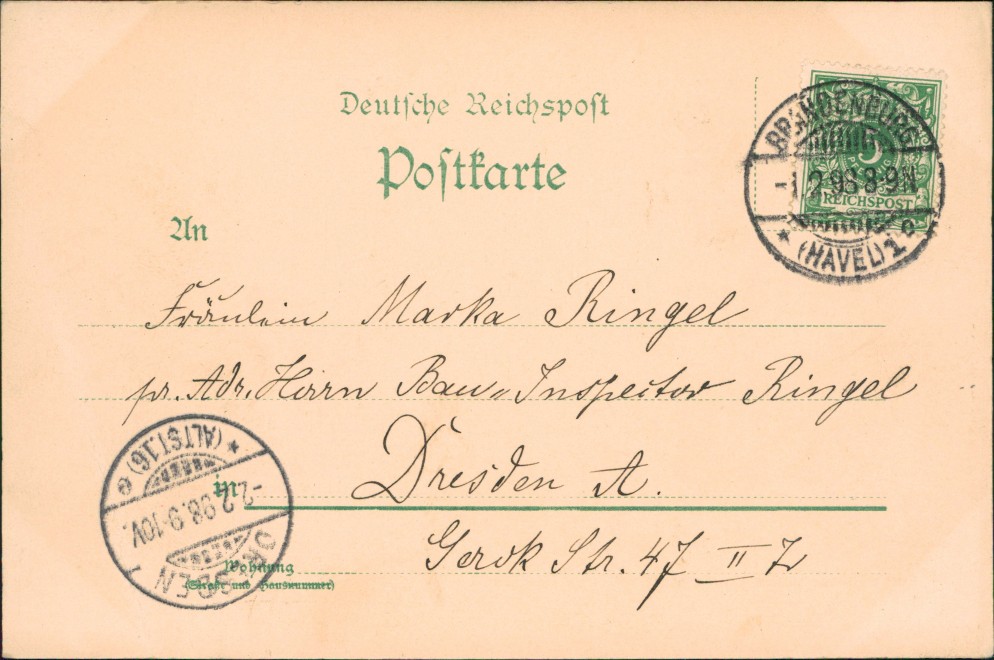 Deutsche Reichspost
Postkarte
BRANDENBURG
5
PFENNIG
-1.2.98.8-9N
REICHSPOST
* (HAVEL) 1 c
An
Fräulein Marka Ringel
pr. Adr. Herrn Bau-Inspector Ringel
in Dresden A.
Gerok Str. 47 II Z
Wohnung
(Straße und Hausnummer)
* (ALTST.16) e
-2.2.98.9-10V.
DRESDEN